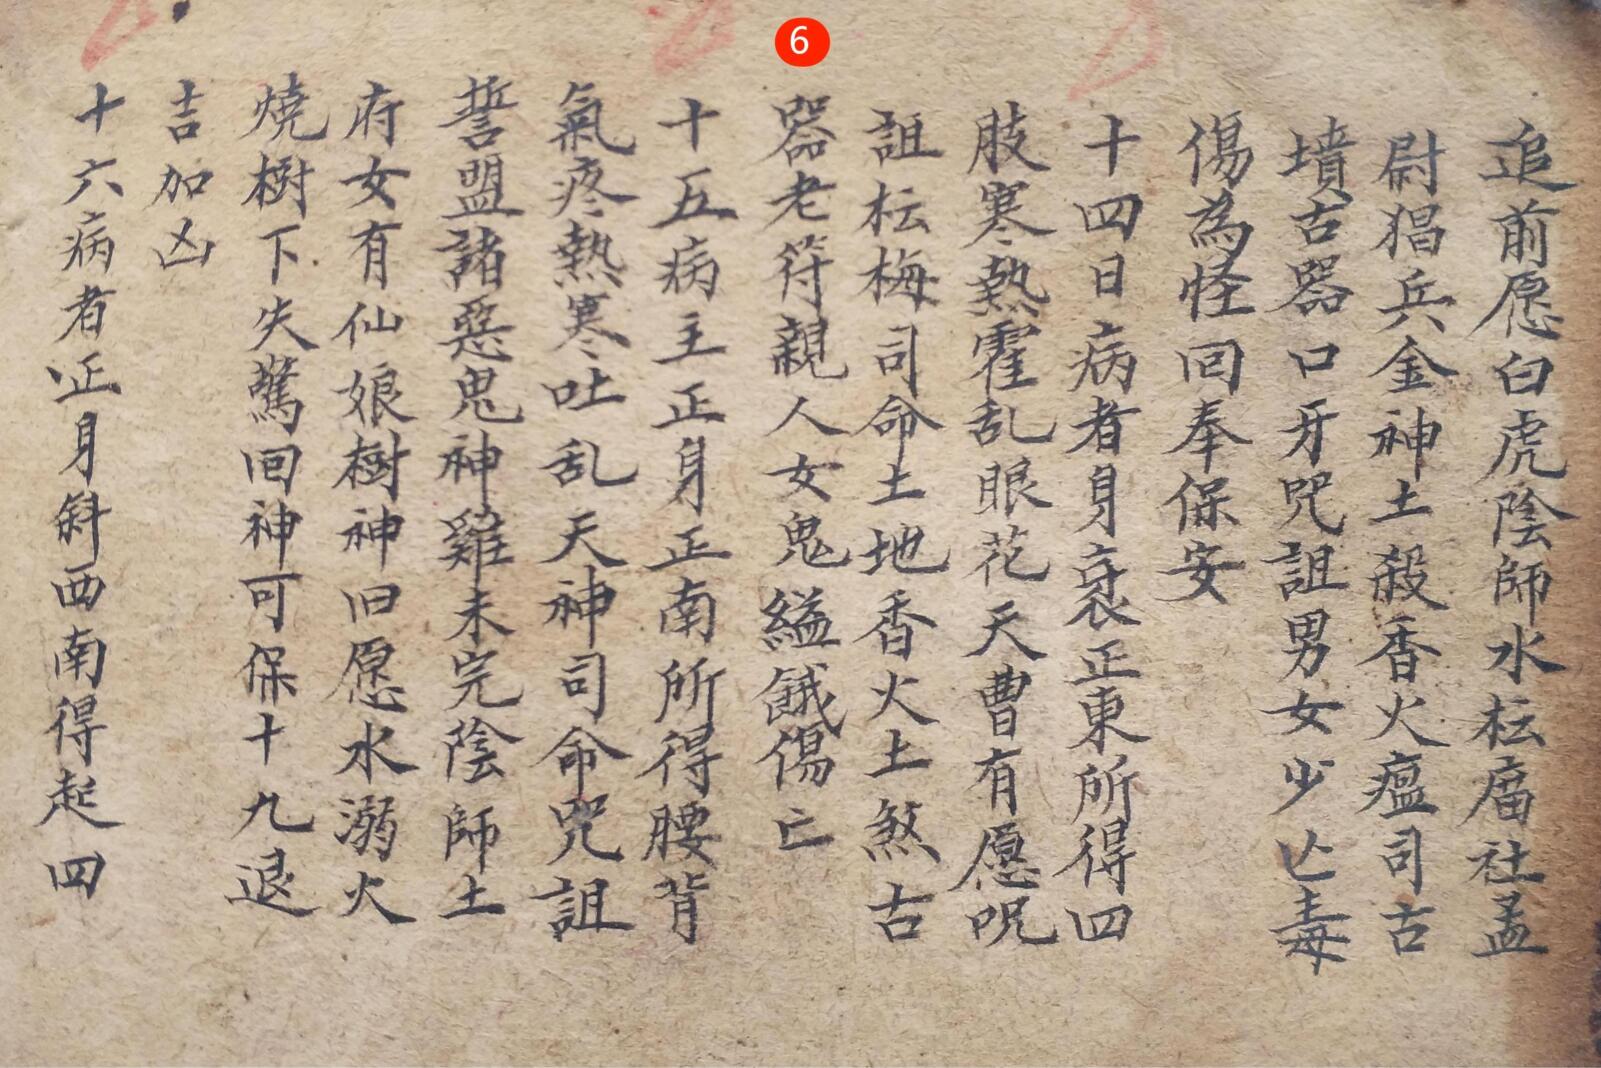 6
追前愿白虎陰師水枟庙社孟
尉猖兵金神土殺香火瘟司古
墳古器口牙咒詛男女少亾毒
傷為怪回奉保安
十四日病者身衰正東所得四
肢寒熱霍乱眼花天曹有愿呪
詛枟梅司命土地香火土煞古
器老符親人女鬼縊餓傷亡
十五病主正身正南所得腰背
氣疼熱寒吐乱天神司命咒詛
誓盟諸惡鬼神雞未完陰師土
府女有仙娘樹神旧愿水溺火
燒樹下失驚回神可保十九退
吉加凶
十六病者正身斜西南得起四